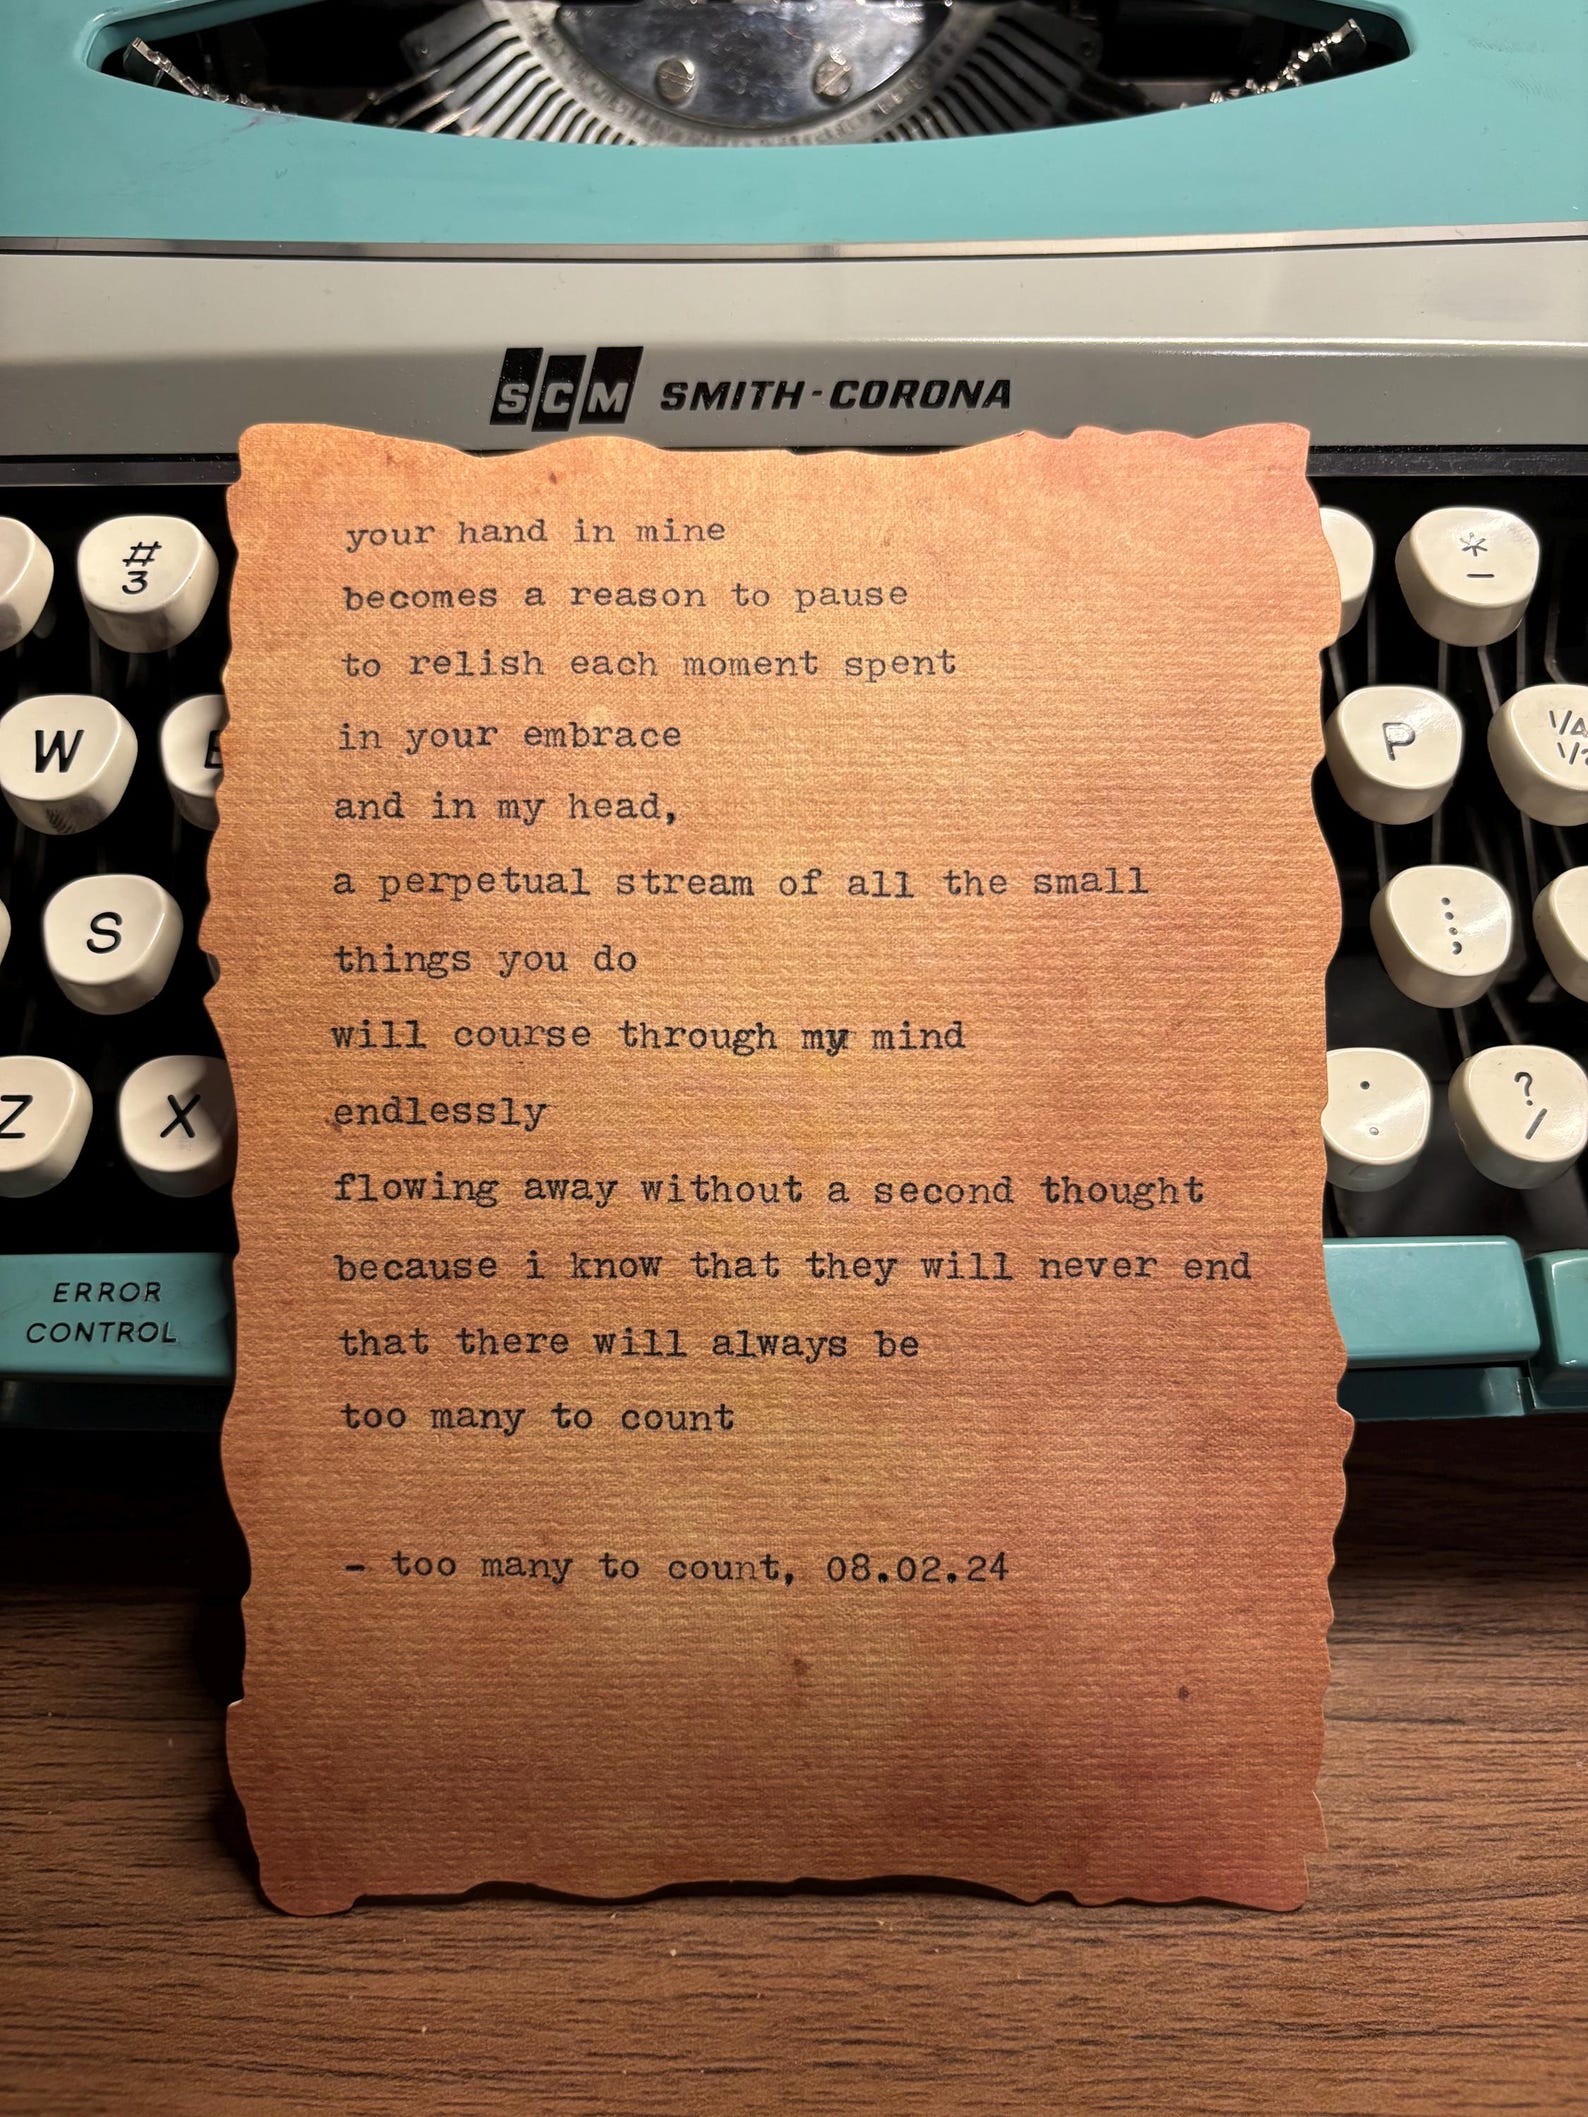 SCM SMITH-CORONA
your hand in mine
becomes a reason to pause
to relish each moment spent
in your embrace
and in my head,
a perpetual stream of all the small
things you do
will course through my mind
endlessly
flowing away without a second thought
because i know that they will never end
that there will always be
too many to count
- too many to count, 08.02.24
#
3
*
-
W
E
P
1/4
1/2
S
:
;
Z
X
.
.
?
/
ERROR
CONTROL